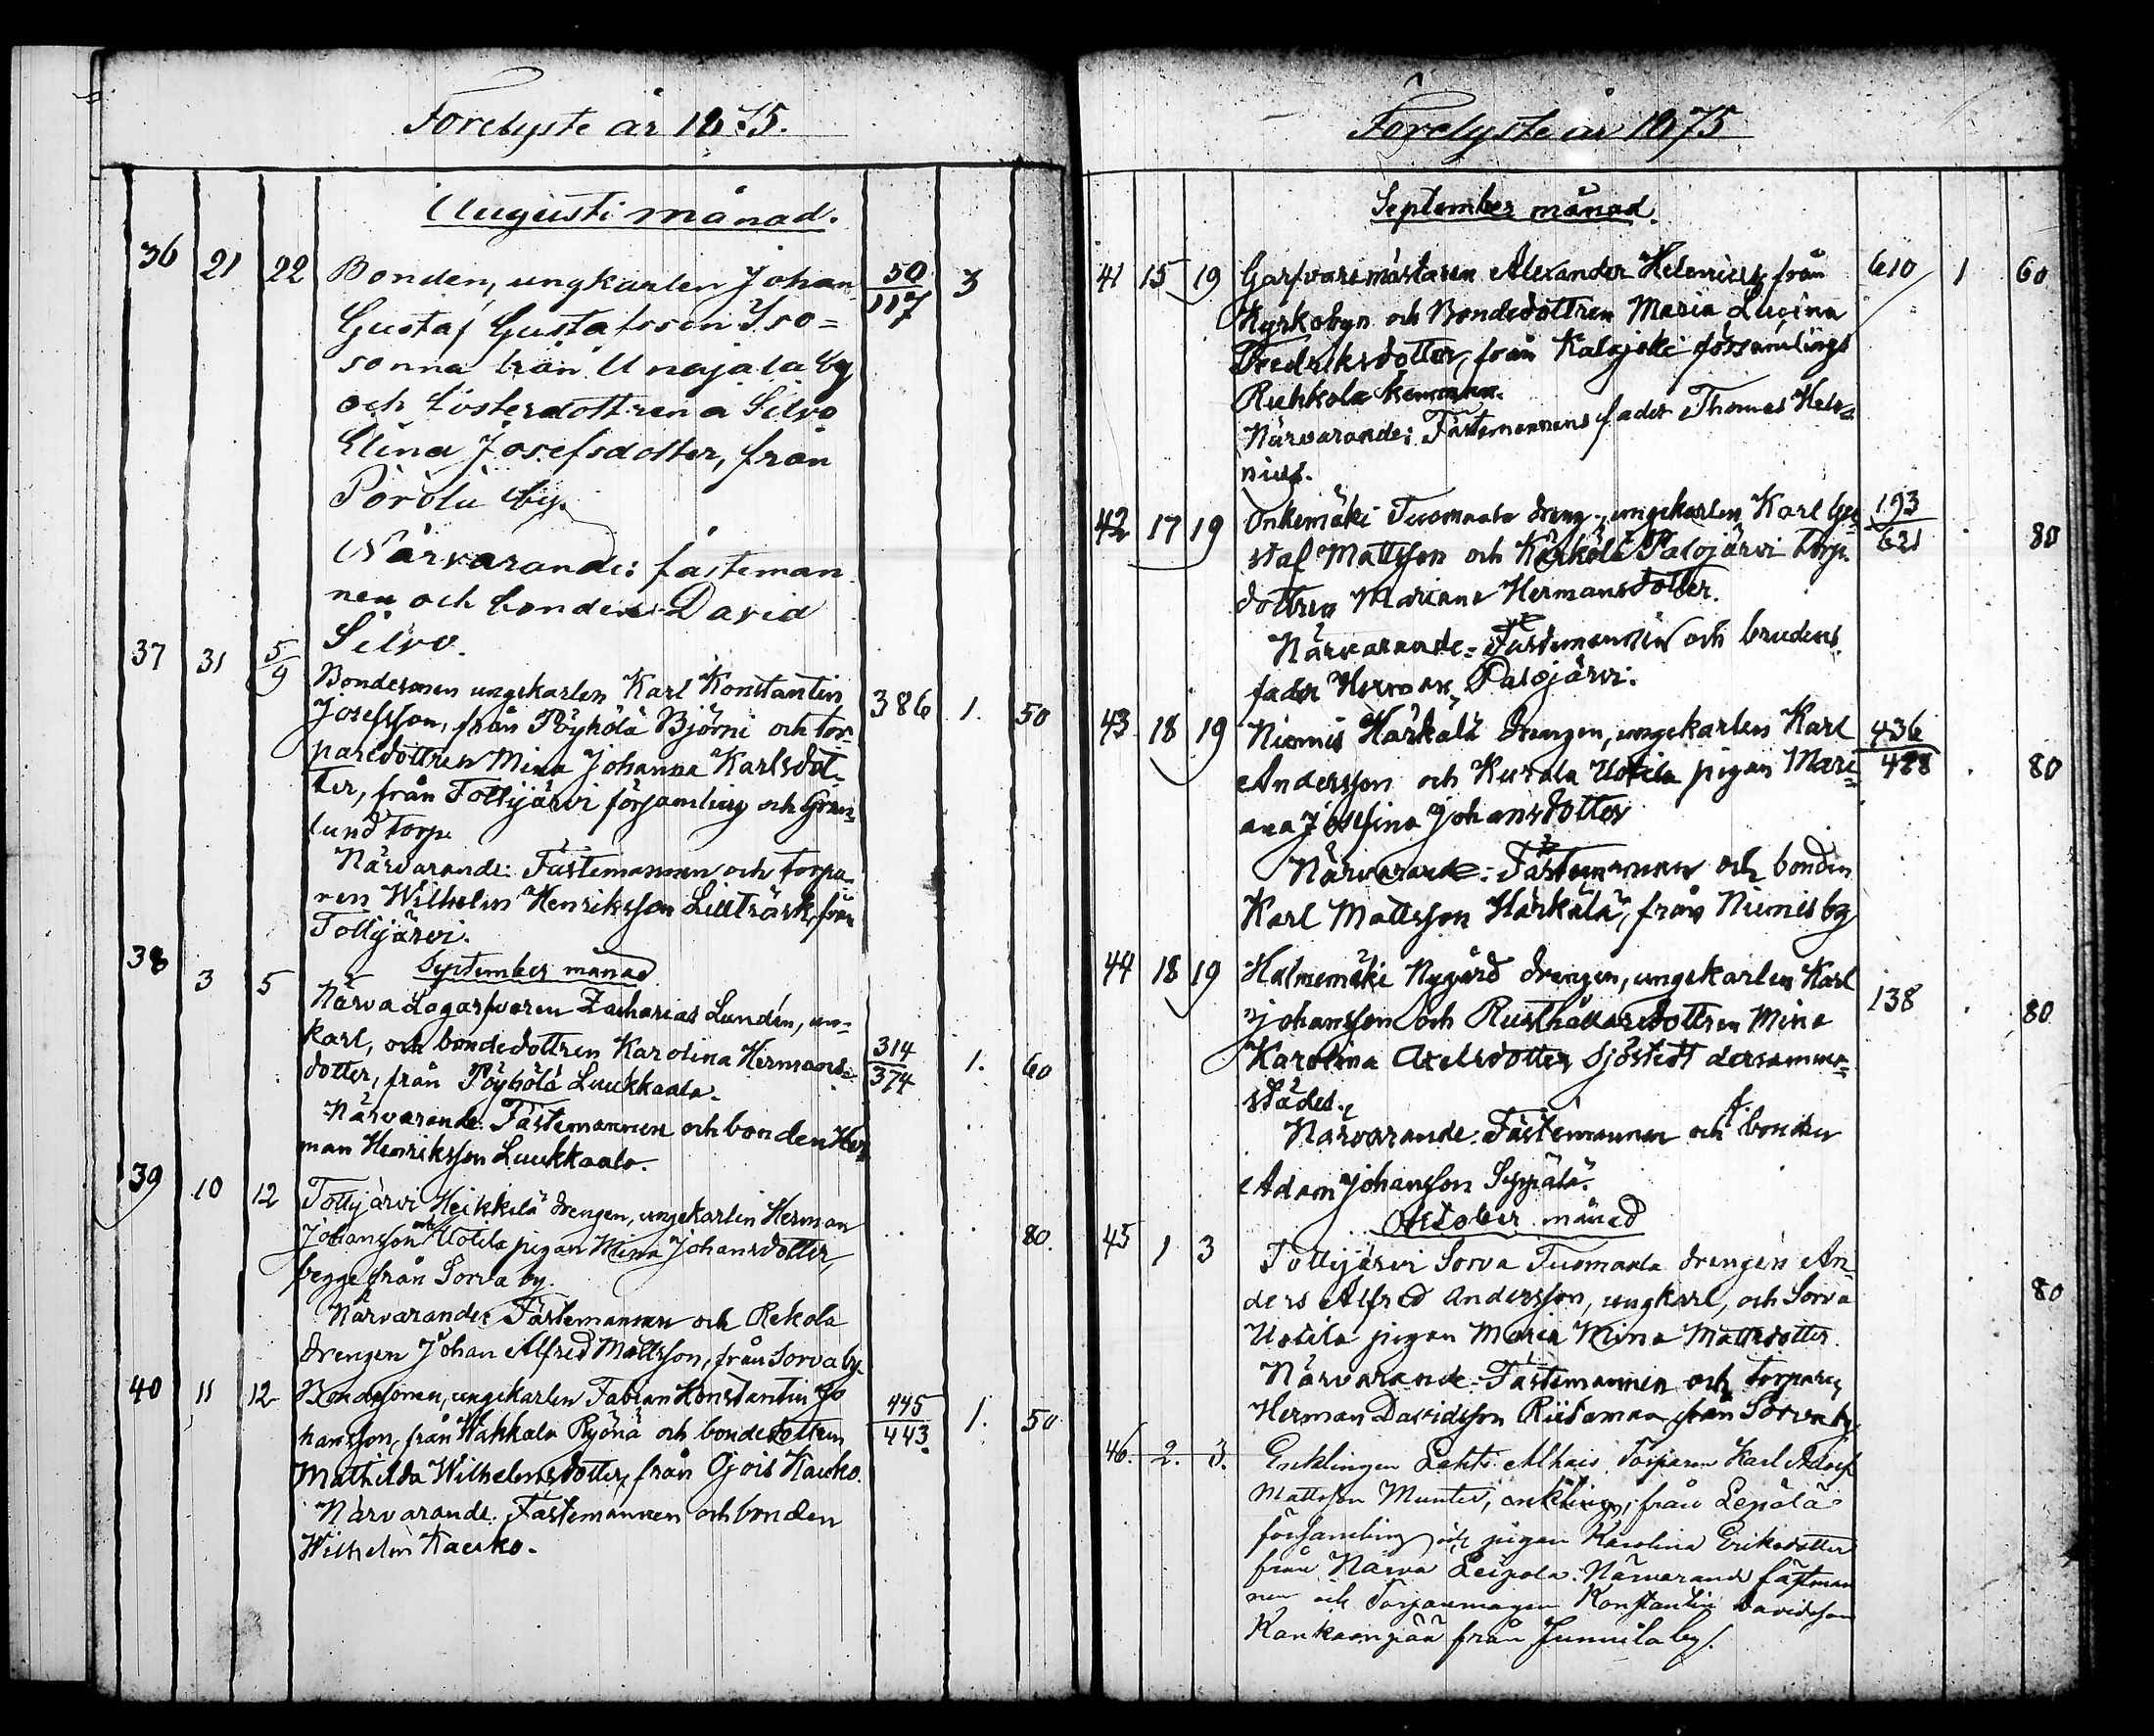 Förelyste år 1875.
Augusti månad.
36 21 22 Bonden, ungkarlen Johan 50/117 3
Gustaf Gustafsson Iso=
sonna från Unajala by
och Systerdottren a Silvo
Elina Josefsdotter, från
Pörölä by.
Närvarande: fästeman
nen och bonden David
Silvo.
37 31 5/9 Bondesonen ungekarlen Karl Konstantin
Josefsson, från Pöyhölä Björni och tor= 386 1. 50
paredottren Mina Johanna Karlsdot=
ter, från Tottijärvi församling och Grön=
lund torp.
Närvarande: Fästemannen och torpa=
ren Wilhelm Henriksson Lillträsk, från
Tottijärvi.
September månad
38 3 5 Närva Lagarfvaren Zacharias Lundén, un=
karl, och bondedottren Karolina Hermans= 314/374 1. 60
dotter, från Pöyhölä Luukkaala.
Närvarande: Fästemannen och bonden Her=
man Henriksson Luukkaala.
39 10 12 Tottijärvi Heikkilä drengen, ungekarlen Herman
Johansson och Uotila pigan Mina Johansdotter, 80.
begge från Sorva by.
Närvarande: Fästemannen och Rekola
drengen Johan Alfred Mattsson, från Sorva by.
40 11 12 Bondesonen, ungekarlen Fabian Konstantin Jo
hansson, från Hakkala Ryönä och bondedottren 445/443 1. 50
Mathilda Wilhelmsdotter, från Ojois Kauko.
Närvarande: Fästemannen och bonden
Wilhelm Kauko.
Förelyste år 1875
September månad.
41 15 19 Garfvaremästaren Alexander Helenius, från 610 1 60
Kyrkobyn och Bondedottren Maria Lucina
Fredriksdotter, från Kalajoki församlings
Ruhkola hemman.
Närvarande: Fästemannens fader Thomas Hele=
nius.
42 17 19 Onkemäki Tuomaala dreng, ungekarlen Karl Gu= 193/621 80
staf Mattsson och Kärkölä Palojärvi torp.
dottren Mariana Hermansdotter.
Närvarande: Fästemannen och brudens
fader Herman Palojärvi.
43 18 19 Niemis Härkälä drengen, ungekarlen Karl 436/428
Andersson och Kurala Uotila pigan Mari= 80
ana Josefina Johansdotter
Närvarande: Fästemannen och bonden
Karl Mattsson Härkälä, från Niemis by
44 18 19 Halmemäki Nygård drengen, ungekarlen Karl
Johansson och Rusthållaredottren Mina 138 80
Karolina Axelsdotter Sjöstedt dersamma=
städes.
Närvarande: Fästemannen och bonden
Adam Johansson Seppälä.
October månad
45 1 3 Tottijärvi Sorva Tuomaala drengen An=
ders Alfred Andersson, ungkarl, och Sorva 80
Uotila pigan Maria Mina Mattsdotter.
Närvarande: Fästemannen och torparen
Herman Davidsson Riitamaa, från Sorva by.
46. 2. 3. Enklingen Lahti Alhais Torparen Karl Adolf
Mattsson Munter, enkling, från Lepälä
församling och pigan Karolina Eriksdotter
från Närva Leipola. Närvarand fästman
nen och Torparemågen Konstantin Davidsson
Kankaanpää från Junnila by.